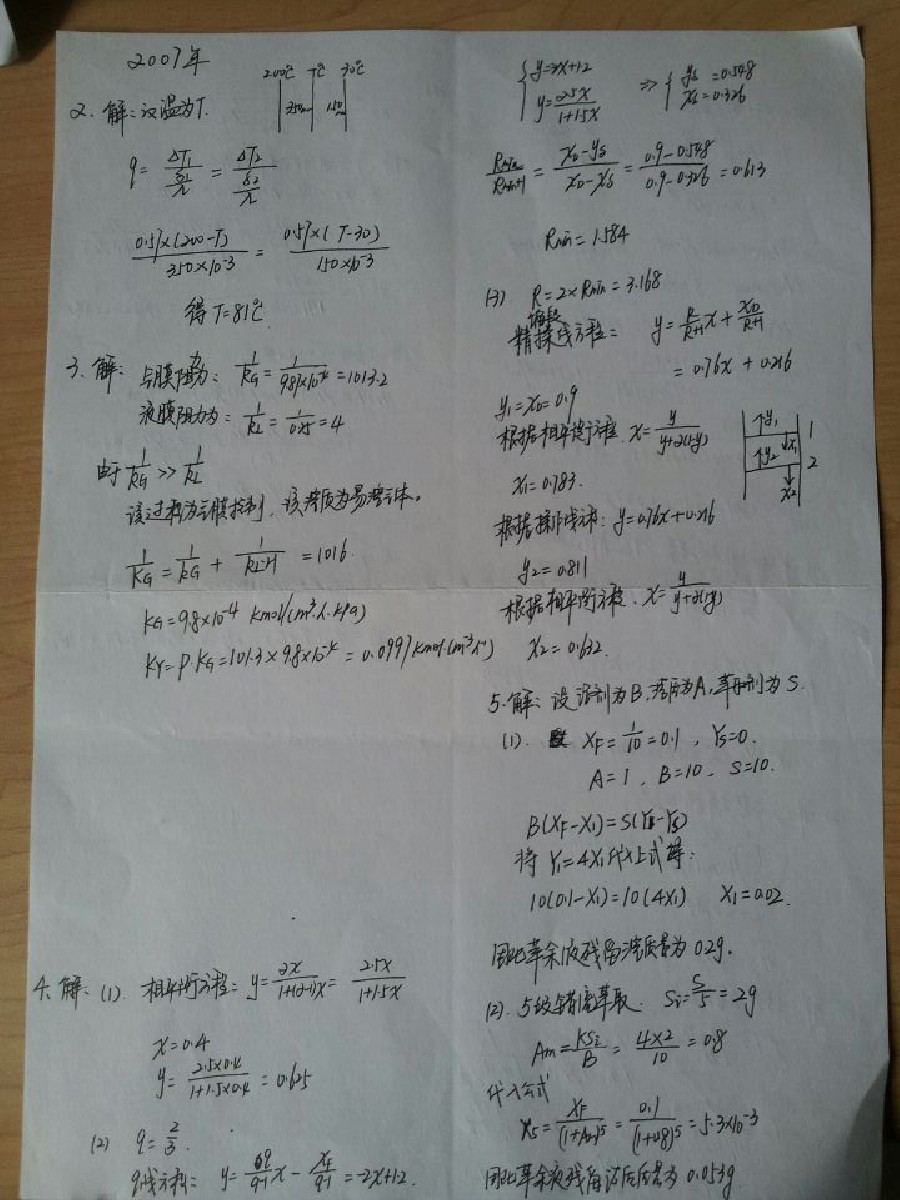 2007年
2. 解: 设温为T.
200℃ T℃ 30℃
350mm 150mm
q = ΔT₁/(δ₁/λ) = ΔT₂/(δ₂/λ)
0.57×(200-T)/(350×10⁻³) = 0.57×(T-30)/(150×10⁻³)
得 T=81℃
3. 解: 气膜阻力为: 1/kG = 1/(9.87×10⁻⁴) = 1013.2
液膜阻力为: 1/kL = 1/0.25 = 4
由于 1/kG >> 1/kL
该过程为气膜控制, 该溶质为易溶气体。
1/KG = 1/kG + 1/(kL·H) = 1016
KG = 9.8×10⁻⁴ kmol/(m³·s·kPa)
KY = P·KG = 101.3×9.8×10⁻⁴ = 0.0997 kmol·(m⁻³·s⁻¹)
4. 解: (1) 相平衡方程: y = αx/(1+(α-1)x) = 2.5x/(1+1.5x)
x=0.4
y = 2.5×0.4/(1+1.5×0.4) = 0.625
(2) q = 2/3.
q线方程: y = q/(q-1) x - xF/(q-1) = -2x+1.2
{ y=-2x+1.2
y = 2.5x/(1+1.5x)
⇒ { yδ = 0.548
xδ = 0.326
Rmin/(Rmin+1) = (xD-yδ)/(xD-xδ) = (0.9-0.548)/(0.9-0.326) = 0.613
Rmin = 1.584
(3) R = 2×Rmin = 3.168
精馏段操线方程: y = R/(R+1) x + xD/(R+1)
= 0.76x + 0.216
y₁ = xD = 0.9
根据相平衡方程 x = y/(y+α(1-y))
x₁ = 0.783.
↑y₁ 1
↑y₂ ↓x₁ 2
↓ x₂
根据操作线方程: y = 0.76x + 0.216
y₂ = 0.811
根据相平衡方程. x = y/(y+α(1-y))
x₂ = 0.632.
5. 解: 设溶剂为B, 溶质为A, 萃取剂为S.
(1). XF = 1/10 = 0.1 , YS=0.
A=1 , B=10 , S=10.
B(XF-X₁) = S(Y₁-YS)
将 Y₁=4X₁ 代入上式得:
10(0.1-X₁) = 10(4X₁) X₁ = 0.02.
因此萃余液残留溶质量为 0.2g.
(2). 5级错流萃取. Si = S/5 = 2g
Am = KSi/B = 4×2/10 = 0.8
代入公式
X₅ = XF/(1+Am)⁵ = 0.1/(1+0.8)⁵ = 5.3×10⁻³
因此萃余液残留溶质质量为 0.053g